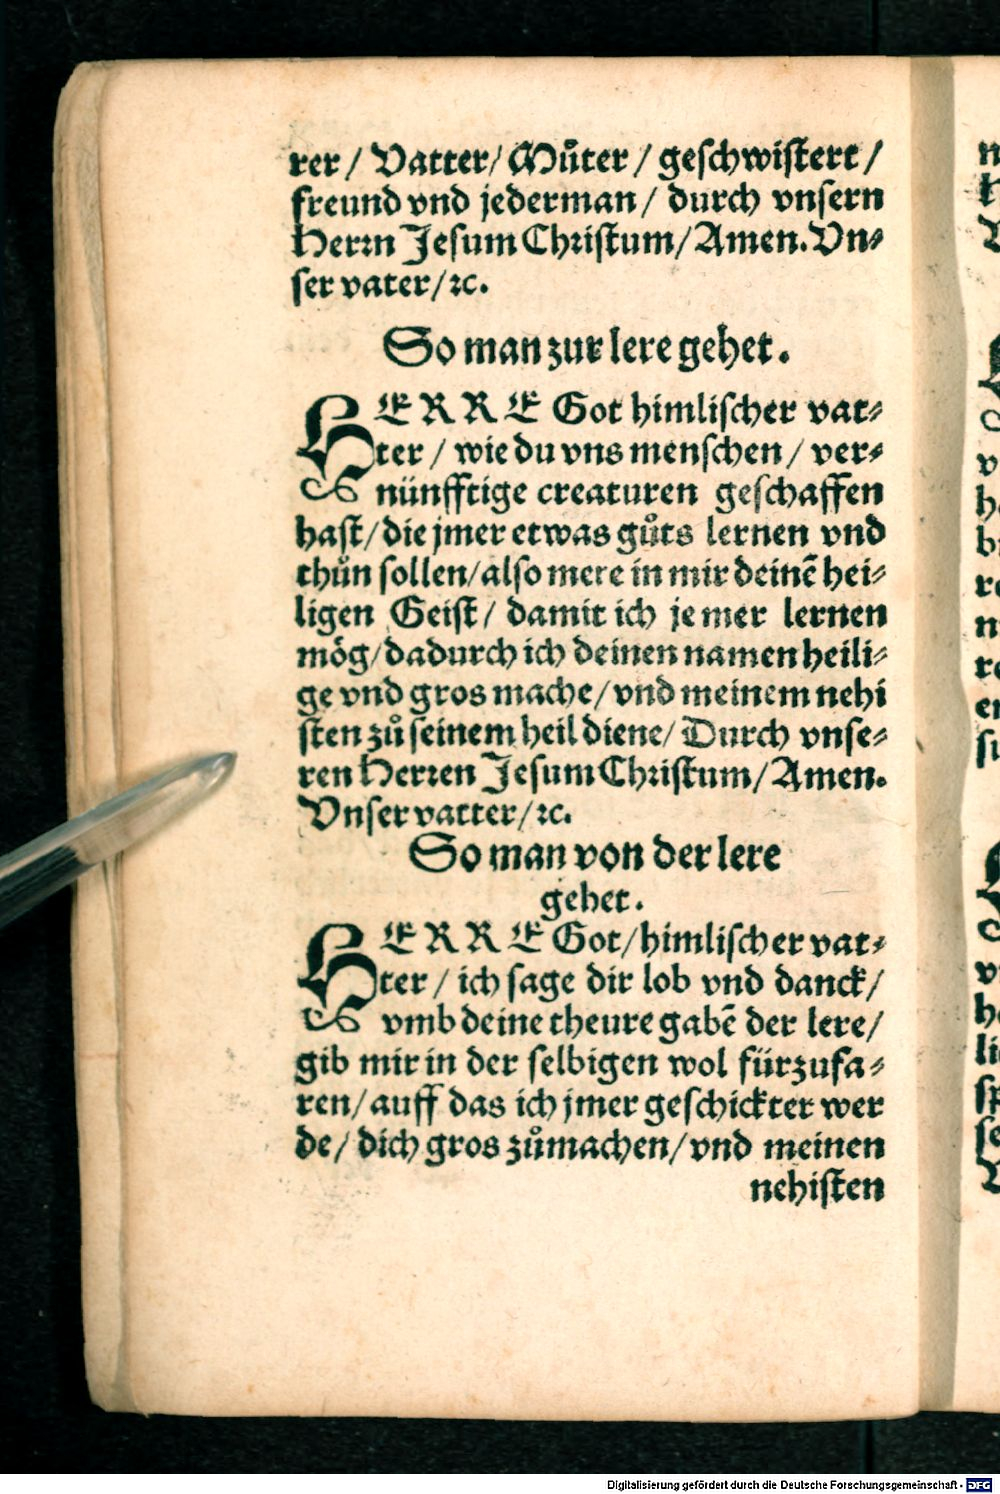 rer / Vatter / Můter / geschwistert /
freund vnd jederman / durch vnsern
Herrn Jesum Christum / Amen. Vn⸗
ser vater / ꝛc.
So man zur lere gehet.
HERRE Got himlischer vat⸗
ter / wie du vns menschen / ver⸗
nünfftige creaturen geschaffen
hast / die jmer etwas gůts lernen vnd
thůn sollen / also mere in mir deinẽ hei⸗
ligen Geist / damit ich je mer lernen
mög / dadurch ich deinen namen heili⸗
ge vnd gros mache / vnd meinem nehi
sten zů seinem heil diene / Durch vnse⸗
ren Herren Jesum Christum / Amen.
Vnser vatter / ꝛc.
So man von der lere
gehet.
HERRE Got / himlischer vat⸗
ter / ich sage dir lob vnd danck /
vmb deine theure gabẽ der lere /
gib mir in der selbigen wol fürzufa⸗
ren / auff das ich jmer geschickter wer
de / dich gros zůmachen / vnd meinen
nehisten
Digitalisierung gefördert durch die Deutsche Forschungsgemeinschaft - DFG